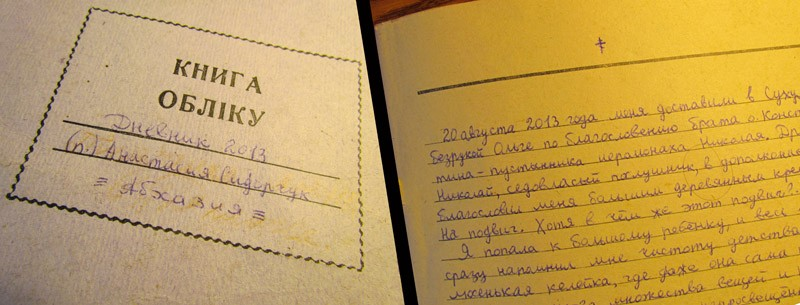 КНИГА
ОБЛІКУ
Дневник 2013
(п.) Анастасия Сидорчук
= Абхазия =
20 августа 2013 года меня доставили в Суху
Безрукой Ольге по благословению брата о. Конст
тина-пустынника иеромонаха Николая. Др
Николай, седовласый послушник, в дополнение
благословил меня большим деревянным кре
на подвиг. Хотя в чём же этот подвиг?
Я попала к большому ребёнку, и весь
сразу напомнил мне чистоту детства
люсенькая келейка, где даже она сама
множества вещей и